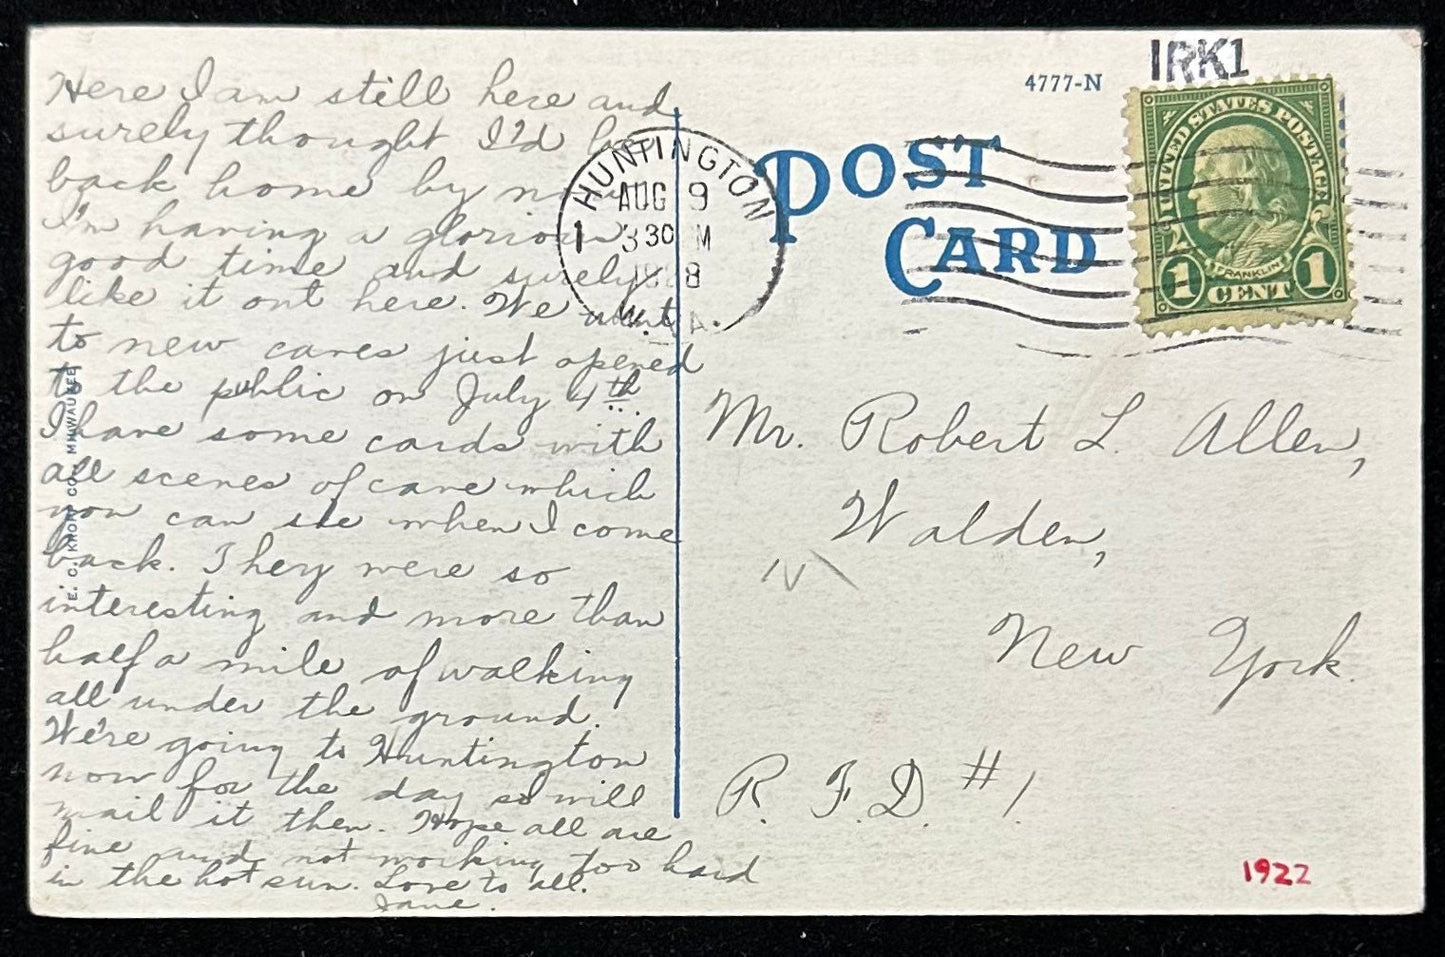 Here I am still here and
surely thought I'd be
back home by now
I'm having a glorious
good time and surely
like it out here. We went
to new caves just opened
to the public on July 4th
I have some cards with
all scenes of cave which
you can see when I come
back. They were so
interesting and more than
half a mile of walking
all under the ground.
We're going to Huntington
now for the day so will
mail it then. Hope all are
fine and not working too hard
in the hot sun. Love to all.
Jane.
E. C. KROPP CO., MILWAUKEE
HUNTINGTON
AUG 9
1 330 M
W. VA.
4777-N
IRK1
POST
CARD
UNITED STATES POSTAGE
FRANKLIN
1 CENT 1
Mr. Robert L. Allen,
Walden,
New York.
R. F. D. #1.
1922